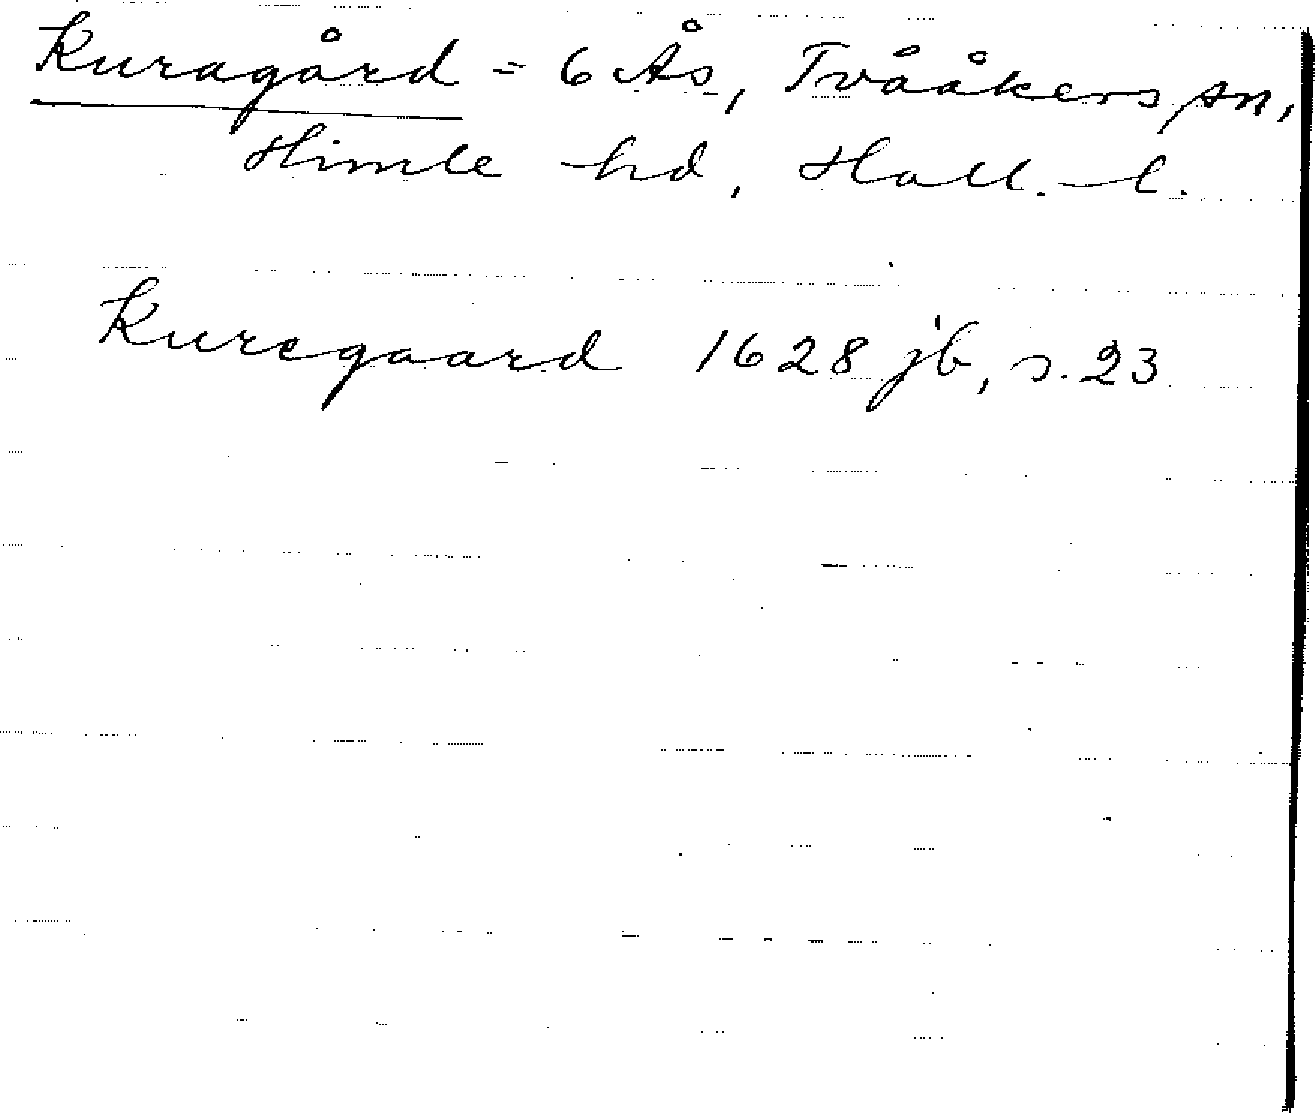 Kuragård = 6 Ås, Tvååkers sn,
Himle hd, Hall. l.
Kuregaard 1628 jb, s. 23